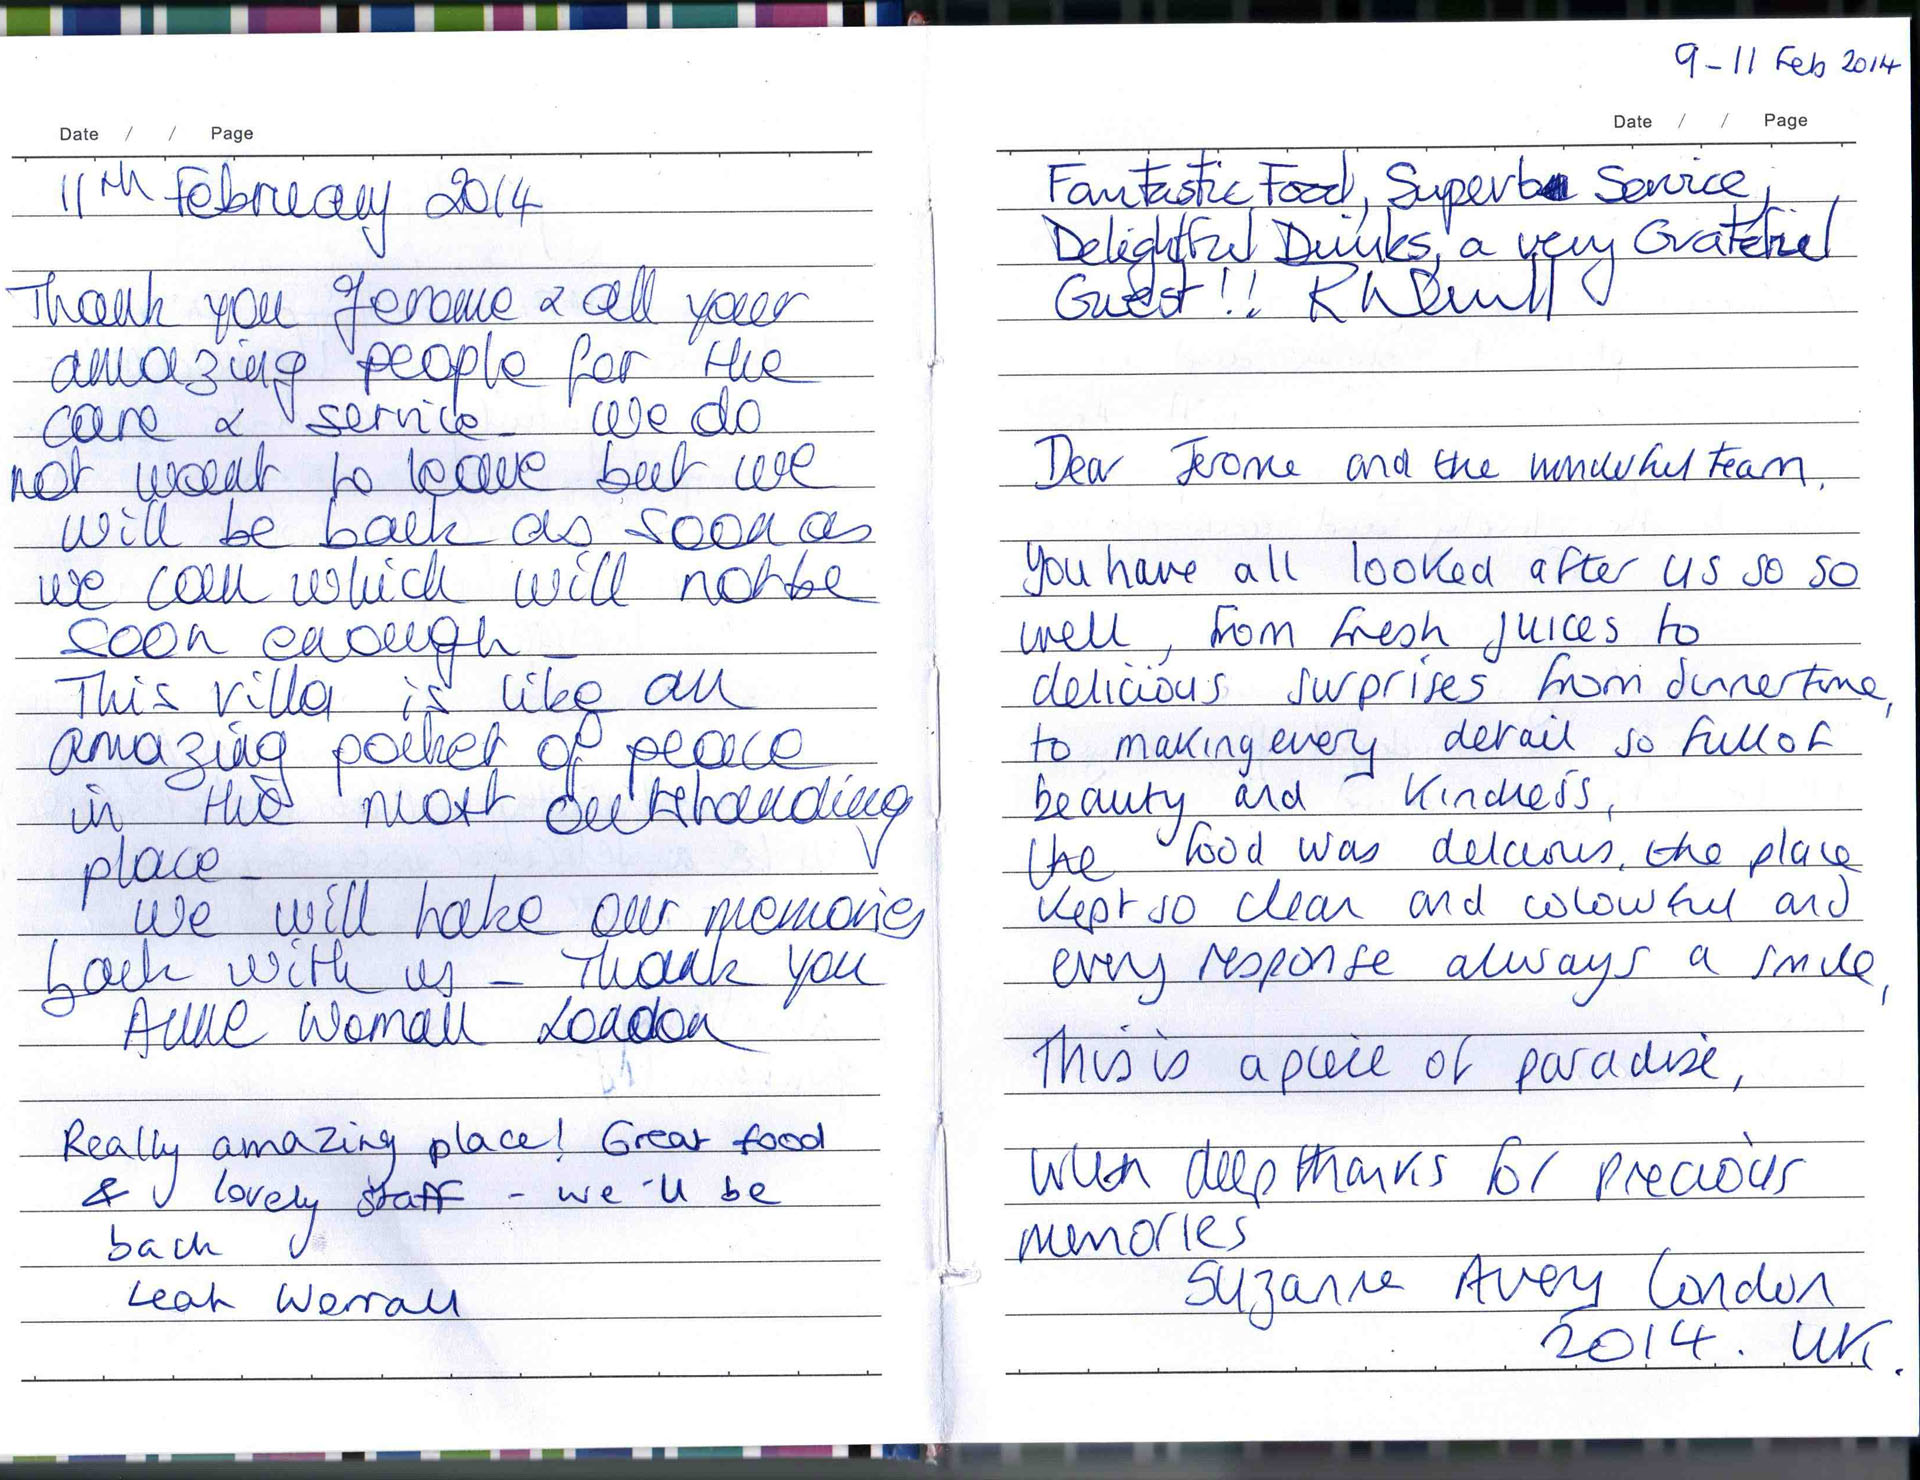 Date / / Page
11th February 2014
Thank you Jerome & all your
amazing people for the
care & service - we do
not want to leave but we
will be back as soon as
we can which will not be
soon enough -
This villa is like an
amazing pocket of peace
in the most outstanding
place -
we will take our memories
back with us - Thank you
Anne Worrall London
Really amazing place! Great food
& lovely staff - we'll be
back
Leah Worrall
9-11 Feb 2014
Date / / Page
Fantastic Food, Superb Service,
Delightful Drinks, a very Grateful
Guest!!
Dear Jerome and the wonderful team,
You have all looked after us so so
well, from fresh juices to
delicious surprises from dinnertime,
to making every detail so full of
beauty and kindness,
the food was delicious, the place
kept so clean and colourful and
every response always a smile,
This is a piece of paradise,
with deep thanks for precious
memories
Suzanne Avery London
2014. UK.